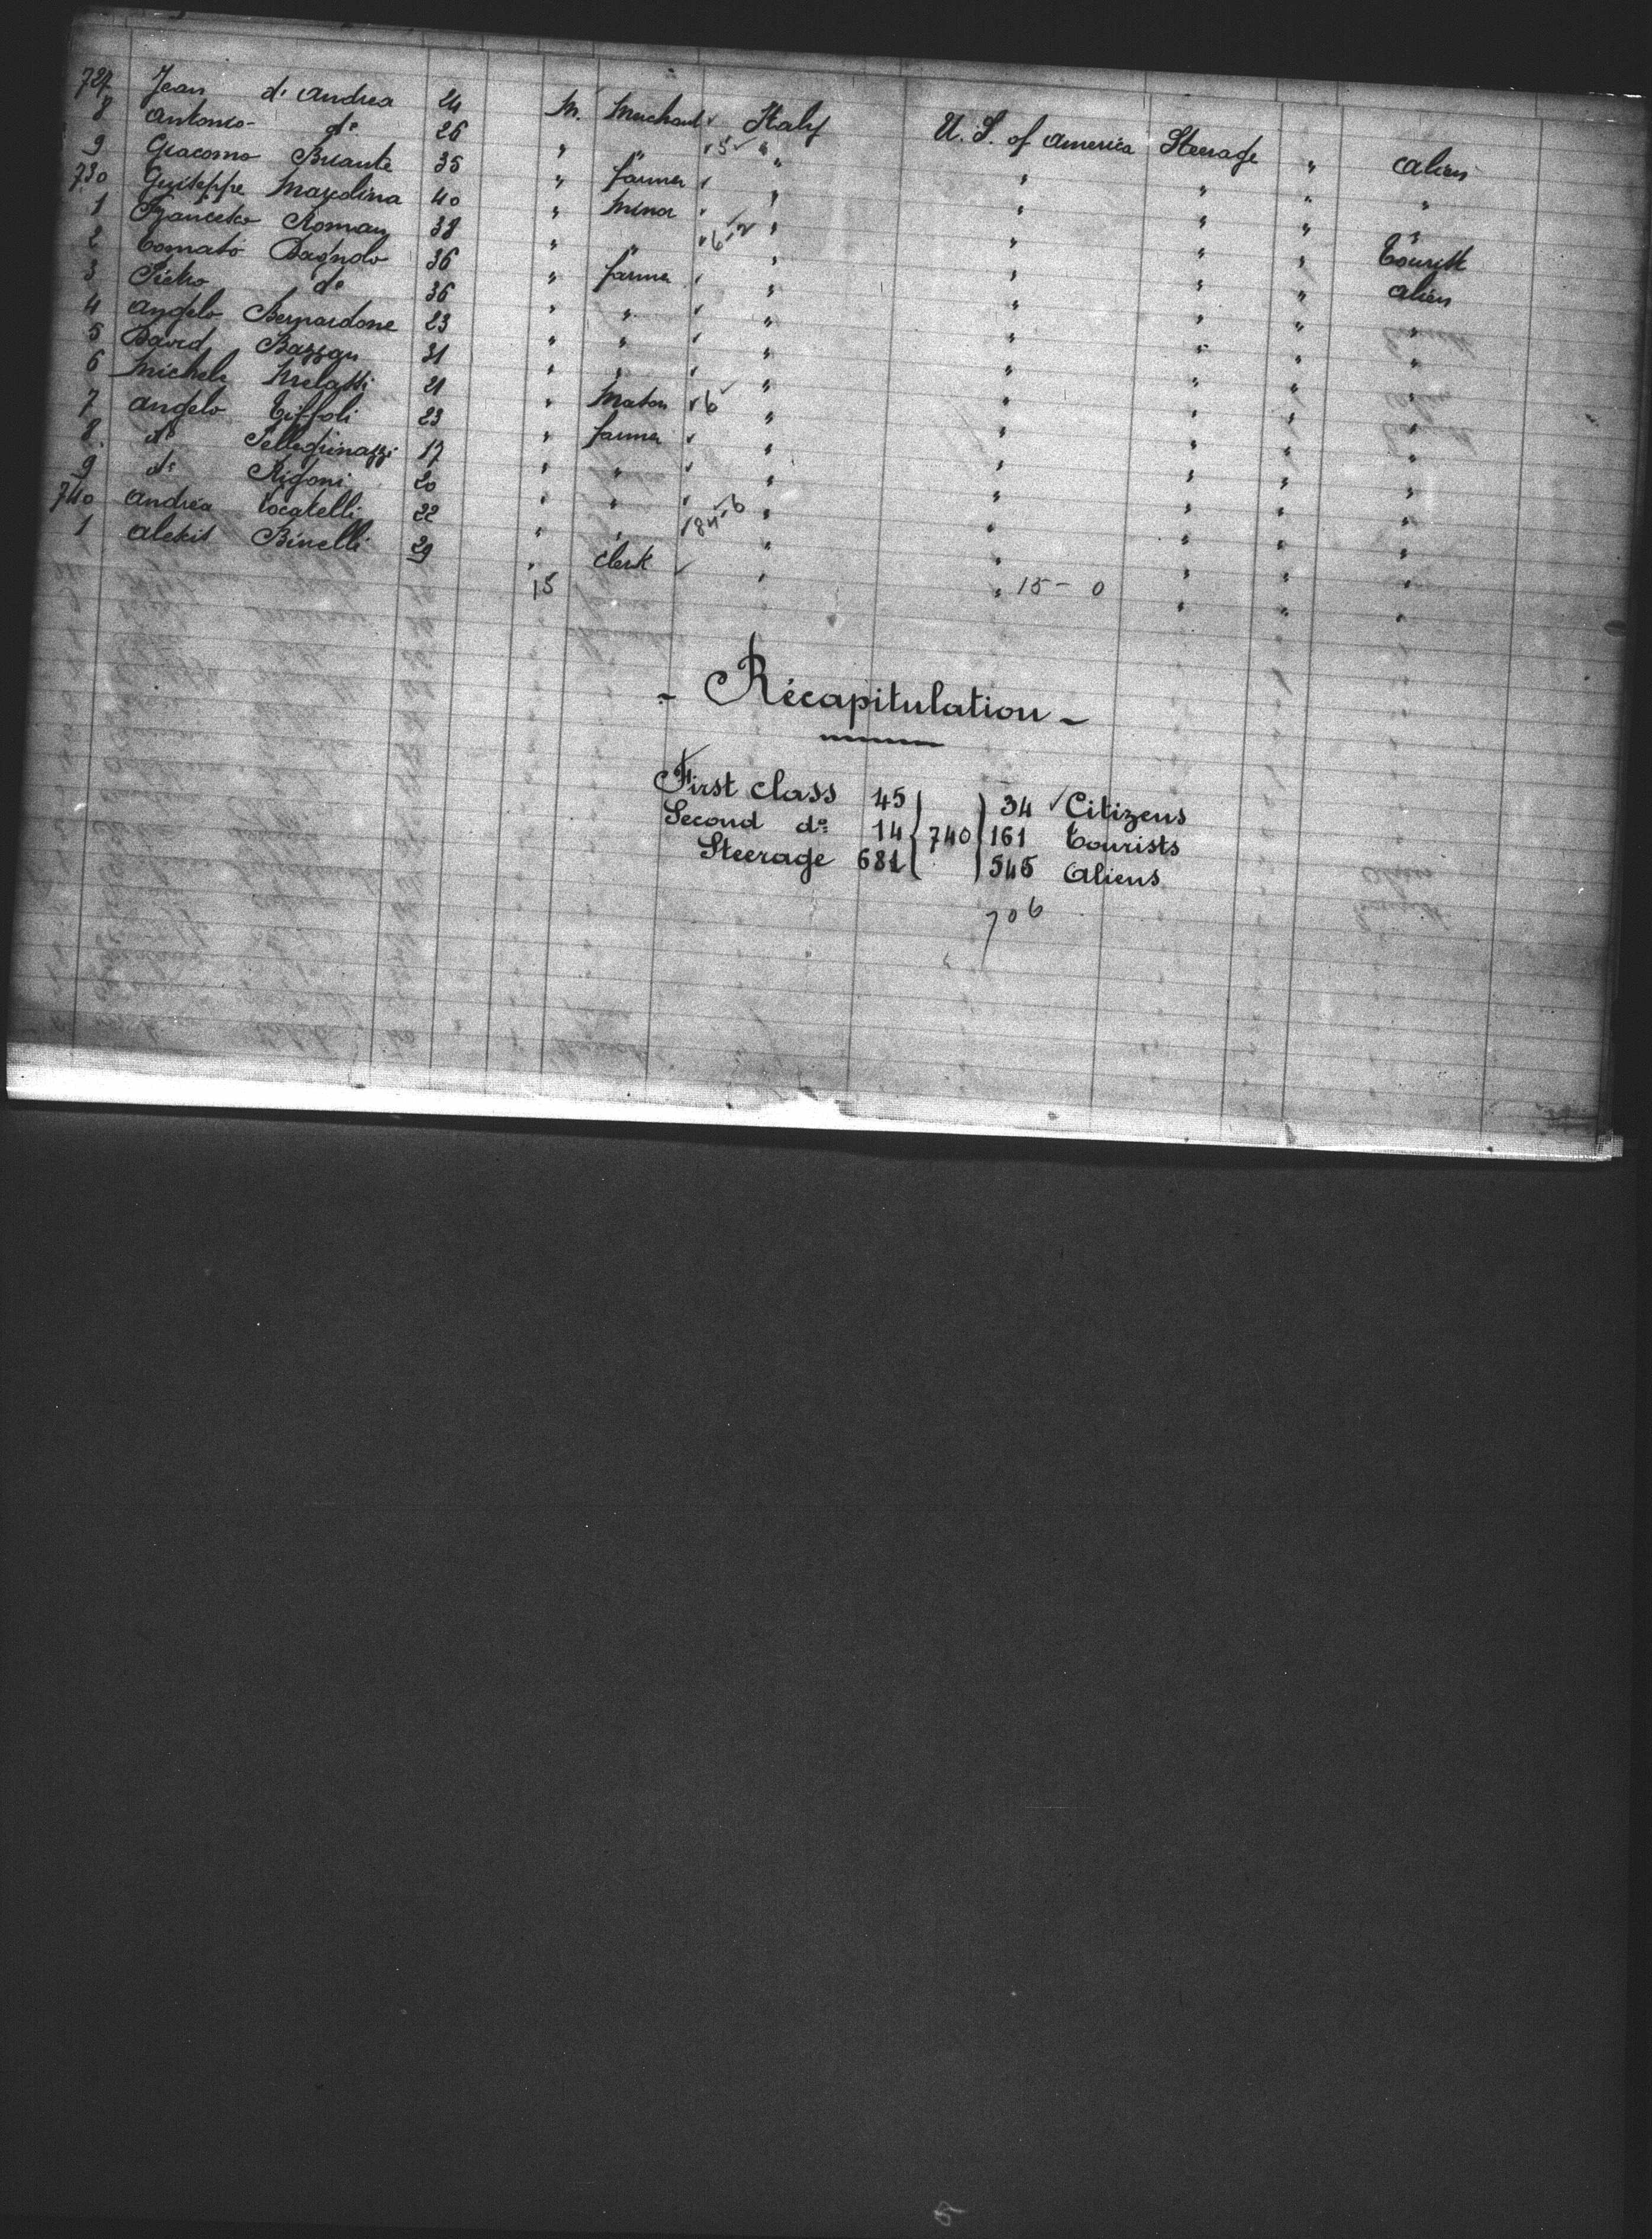 727 Jean d'Andrea 24 M. Merchant Italy U. S. of America Steerage " Alien
8 Antonio do 26 " " 5 " " " " "
9 Giacomo Briante 35 " farmer " " " " "
730 Giuseppe 40 " Minor " " " " Tourist
1 Francesco Roman 38 " " 6-2 " " " " Alien
2 Tomato Dagnolo 36 " farmer " " " " "
3 Pietro do 36 " " " " " " "
4 Angelo Bernardone 23 " " " " " " "
5 David Bazzan 31 " " " " " " "
6 Michele Melatti 21 " Mason 6 " " " " "
7 Angelo Tiffoli 23 " farmer " " " " "
8. do Pellegrinazzi 17 " " " " " " "
9 do Rigoni 20 " " " " " " "
740 Andrea Locatelli 22 " " " " " " "
1 Alexis Binelli 29 " Clerk " " " " "
15 15 - 0
- Récapitulation -
First class 45 34 Citizens
Second do 14 740 161 Tourists
Steerage 681 545 Aliens
706
5